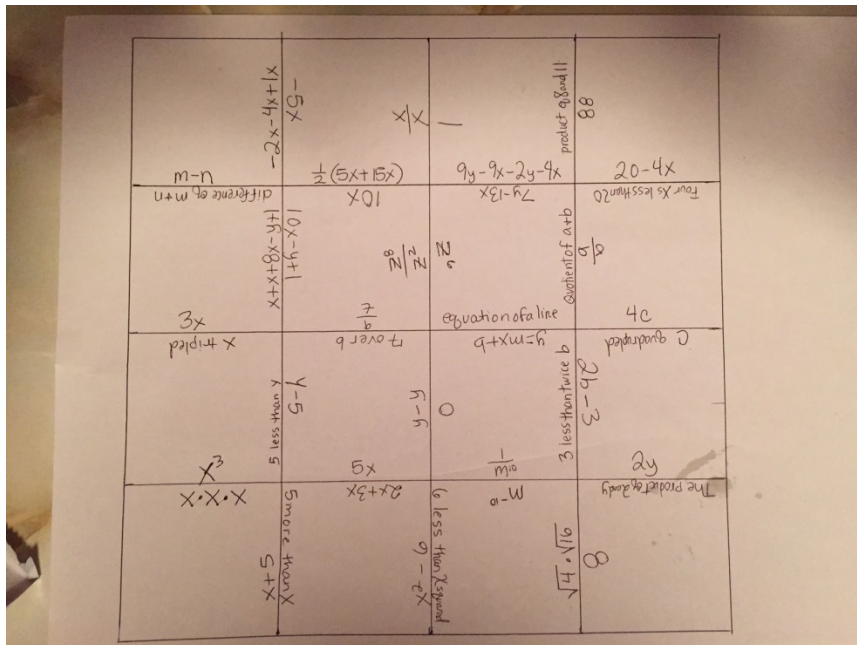 -2x-4x+1x
-5x
x/x
1
product of 8 and 11
88
m-n
½(5x+15x)
9y-9x-2y-4x
20-4x
difference of m+n
10x
7y-13x
Four xs less than 20
x+x+8x-y+1
10x-y+1
z⁸/z²
z⁶
Quotient of a+b
a/b
3x
7/b
equation of a line
4c
x tripled
7 over b
y=mx+b
C quadrupled
5 less than y
y-5
y-y
0
3 less than twice b
2b-3
x³
5x
1/m¹⁰
2y
x·x·x
2x+3x
m⁻¹⁰
The product of 2 and y
5+x
5 more than x
x²-6
6 less than x squared
√4·√16
8